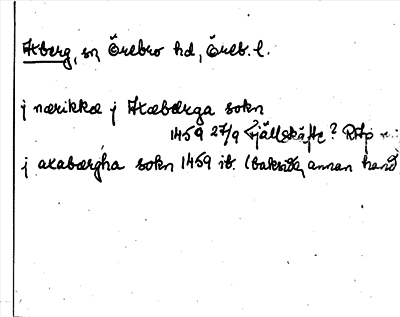 Axberg, sn, Örebro hd, Öreb. l.
j nærikkæ j Axabærga sokn
1459 27/9 Fjällskäfte? RAp
j axabærgha sokn 1459 ib. (baksida, annan hand